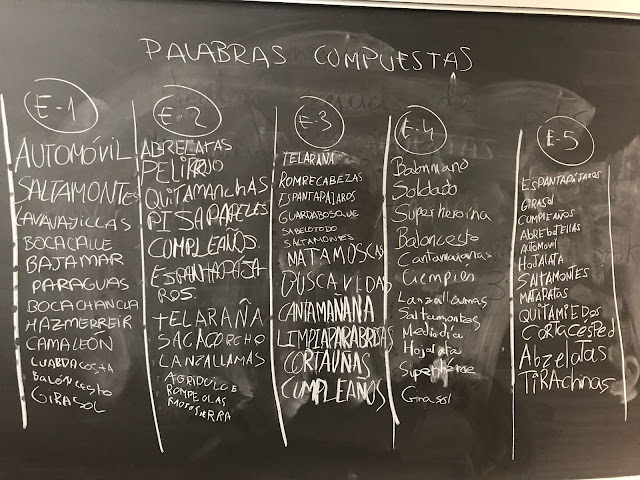 PALABRAS COMPUESTAS
E-1
AUTOMÓVIL
SALTAMONTES
LAVAVAJILLAS
BOCACALLE
BAJAMAR
PARAGUAS
BOCACHANCLA
HAZMERREIR
CAMALEÓN
GUARDACOSTA
BALONCESTO
GIRASOL
E-2
ABRELATAS
PELIRROJO
QUITAMANCHAS
PISAPAPELES
CUMPLEAÑOS
ESPANTAPÁJA
ROS.
TELARAÑA
SACACORCHO
LANZALLAMAS
AGRIDULCE
ROMPEOLAS
MOTOSIERRA
E-3
TELARAÑA
ROMPECABEZAS
ESPANTAPÁJAROS
GUARDABOSQUE
SABELOTODO
SALTAMONTES
MATAMOSCAS
BUSCAVIDAS
CANTAMAÑANA
LIMPIAPARABRISAS
CORTAUÑAS
CUMPLEAÑOS
E-4
Balonmano
Soldado
Superheroína
Baloncesto
Cantamañanas
Ciempies
Lanzallamas
Saltamontes
Mediodía
Hojalata
Superhéroe
Girasol
E-5
ESPANTAPÁJAROS
GIRASOL
CUMPLEAÑOS
ABREBOTELLAS
AUTOMOVIL
HOJALATA
SALTAMONTES
MATARATAS
QUITAMIEDOS
CORTACÉSPED
Abrelatas
TiRAchinas